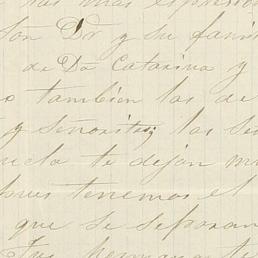 mas espresion
son Dr y su fami
de Da Catarina y
tambien las de
y señoritas; las Se
te dejan mu
pues tenemos el
que se separan
hermana te